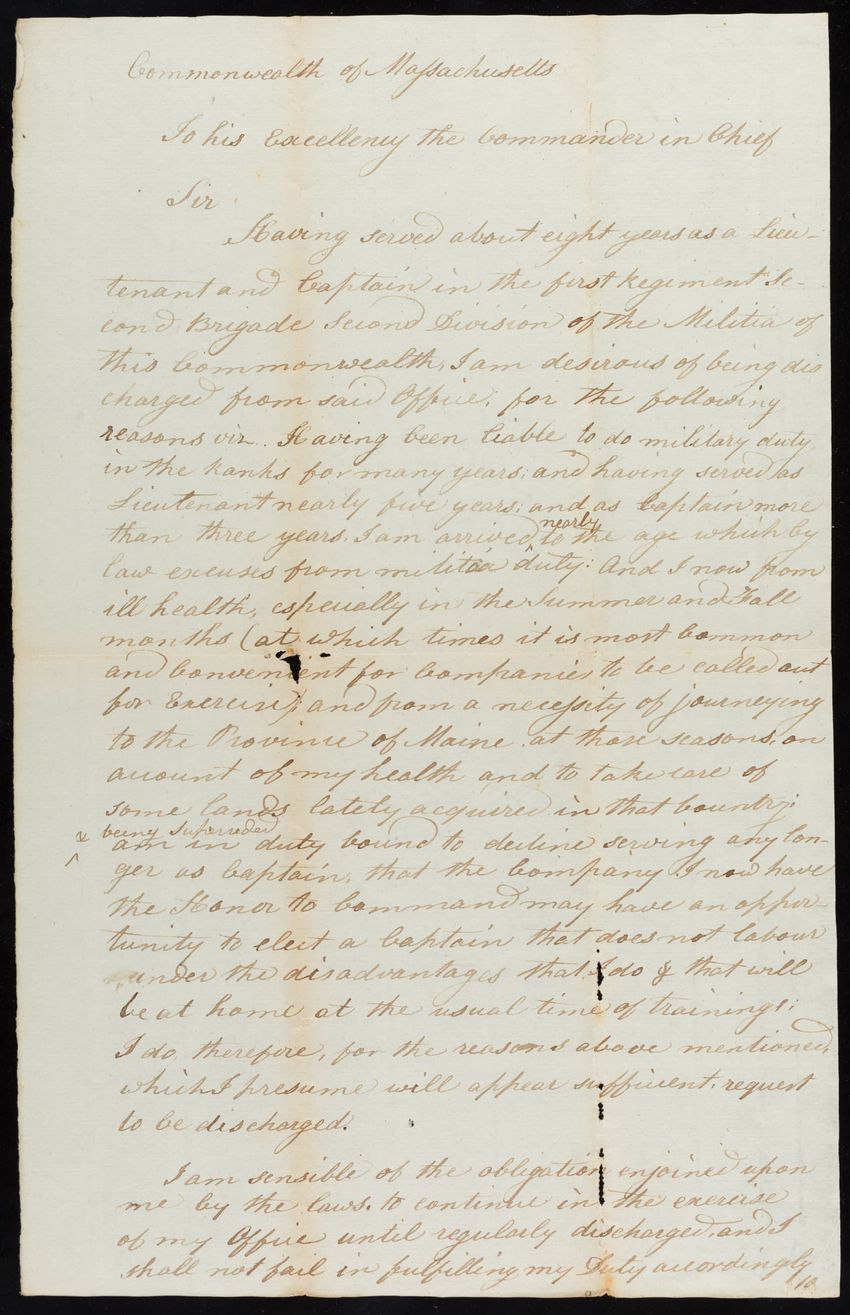 Commonwealth of Massachusetts
To his Excellency the Commander in Chief
Sir
Having served about eight years as a Lieu-
tenant and Captain in the first Regiment Se-
cond Brigade Second Division of the Militia of
this Commonwealth, I am desirous of being dis
charged from said Office, for the following
reasons viz. Having been liable to do military duty
in the Ranks for many years; and having served as
Lieutenant nearly five years; and as Captain more
nearly
than three years, I am arrived to the age which by
law excuses from militia duty: And I now from
ill health, especially in the Summer and Fall
months (at which times it is most common
and Convenient for Companies to be called out
for Exercise); and from a necessity of journeying
to the Province of Maine, at those seasons, on
account of my health and to take care of
some lands lately acquired in that Country;
& being Superseded
am in duty bound to decline serving any lon-
ger as Captain, that the Company I now have
the Honor to Command may have an oppor-
tunity to elect a Captain that does not labour
under the disadvantages that I do & that will
be at home at the usual time of trainings;
I do, therefore, for the reasons above mentioned,
which I presume will appear sufficient, request
to be discharged.
I am sensible of the obligation enjoined upon
me by the laws, to continue in the exercise
of my Office until regularly discharged, and I
shall not fail in fulfilling my Duty accordingly